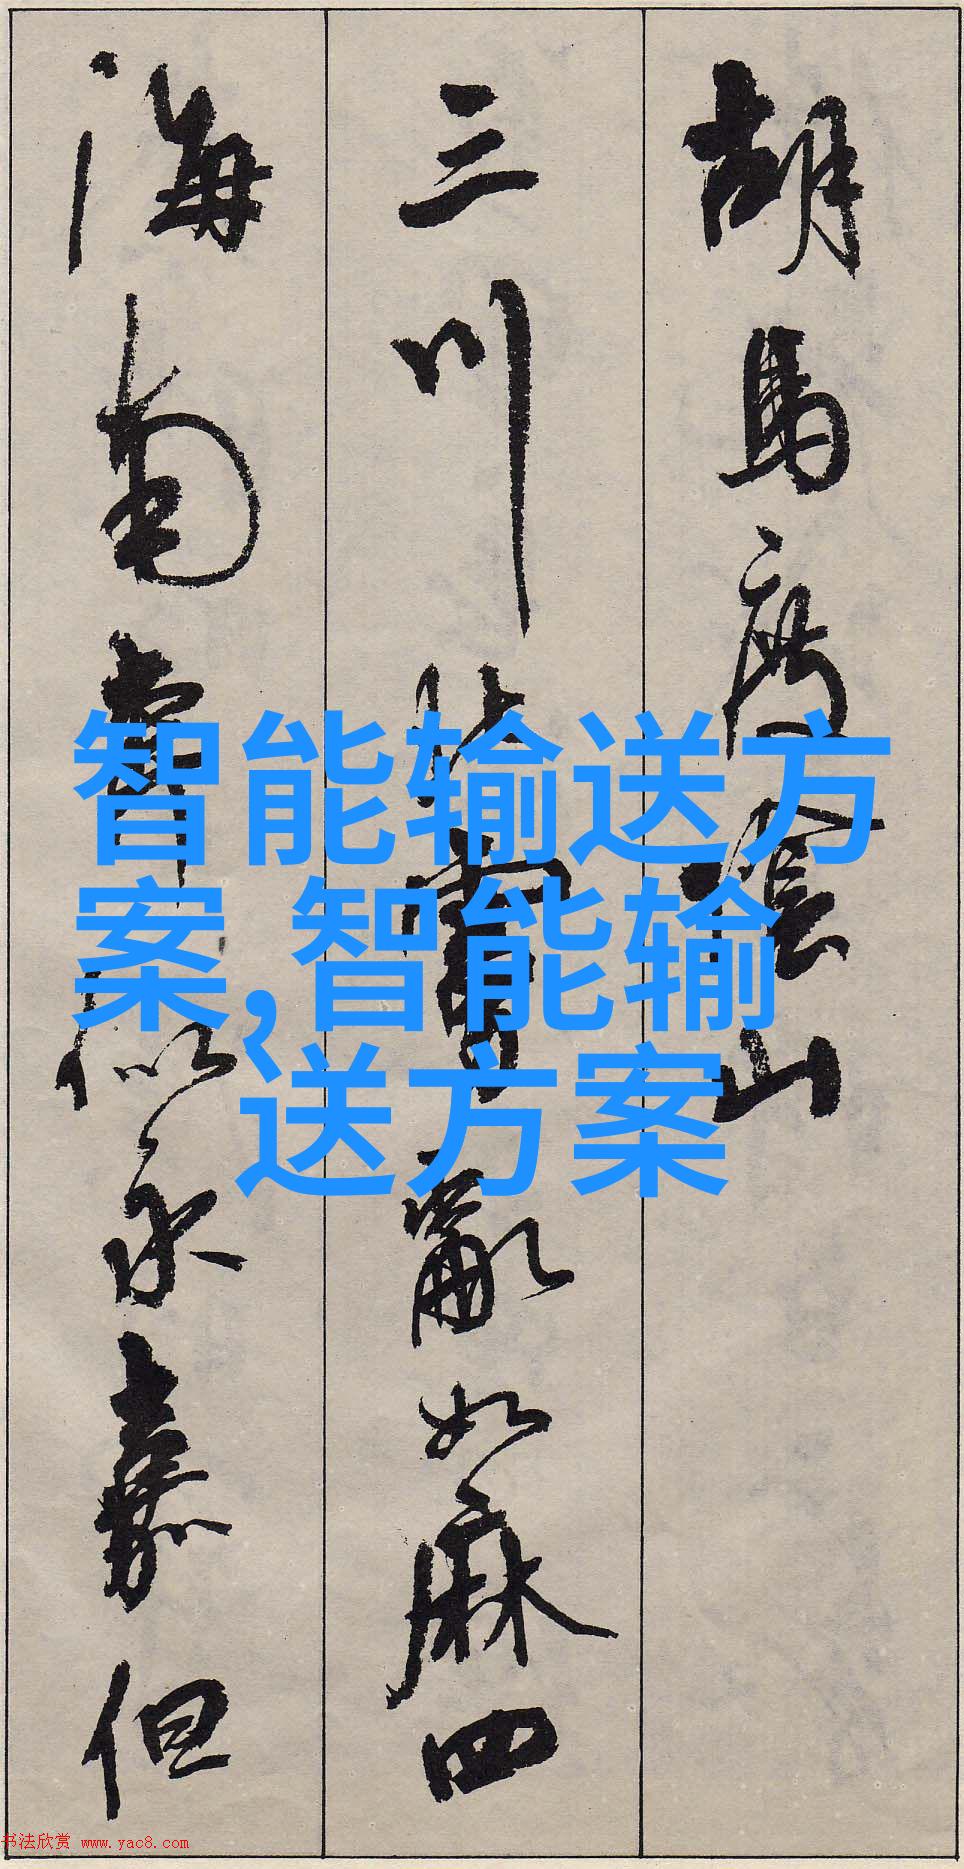 胡馬度陰山
三川北虜亂如麻四
海南奔似永嘉但
智能输送方
案,智能输
送方案
书法欣赏 www.yac8.com